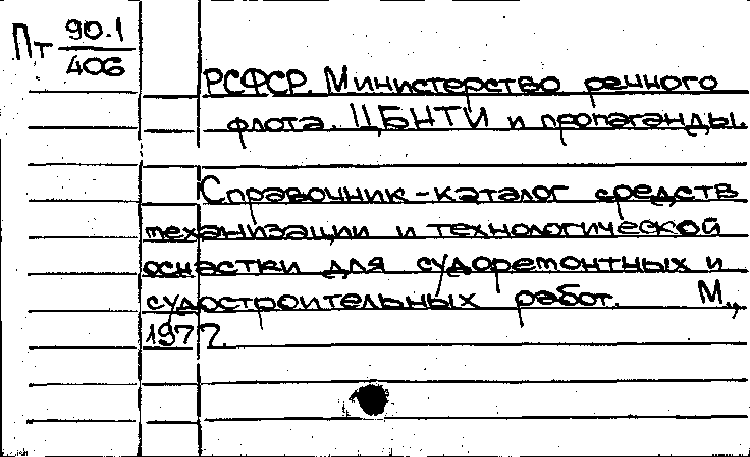 Пт 90.1
406
РСФСР. Министерство речного
флота. ЦБНТИ и пропаганды.
Справочник-каталог средств
механизации и технологической
оснастки для судоремонтных и
судостроительных работ. М.,
1977.